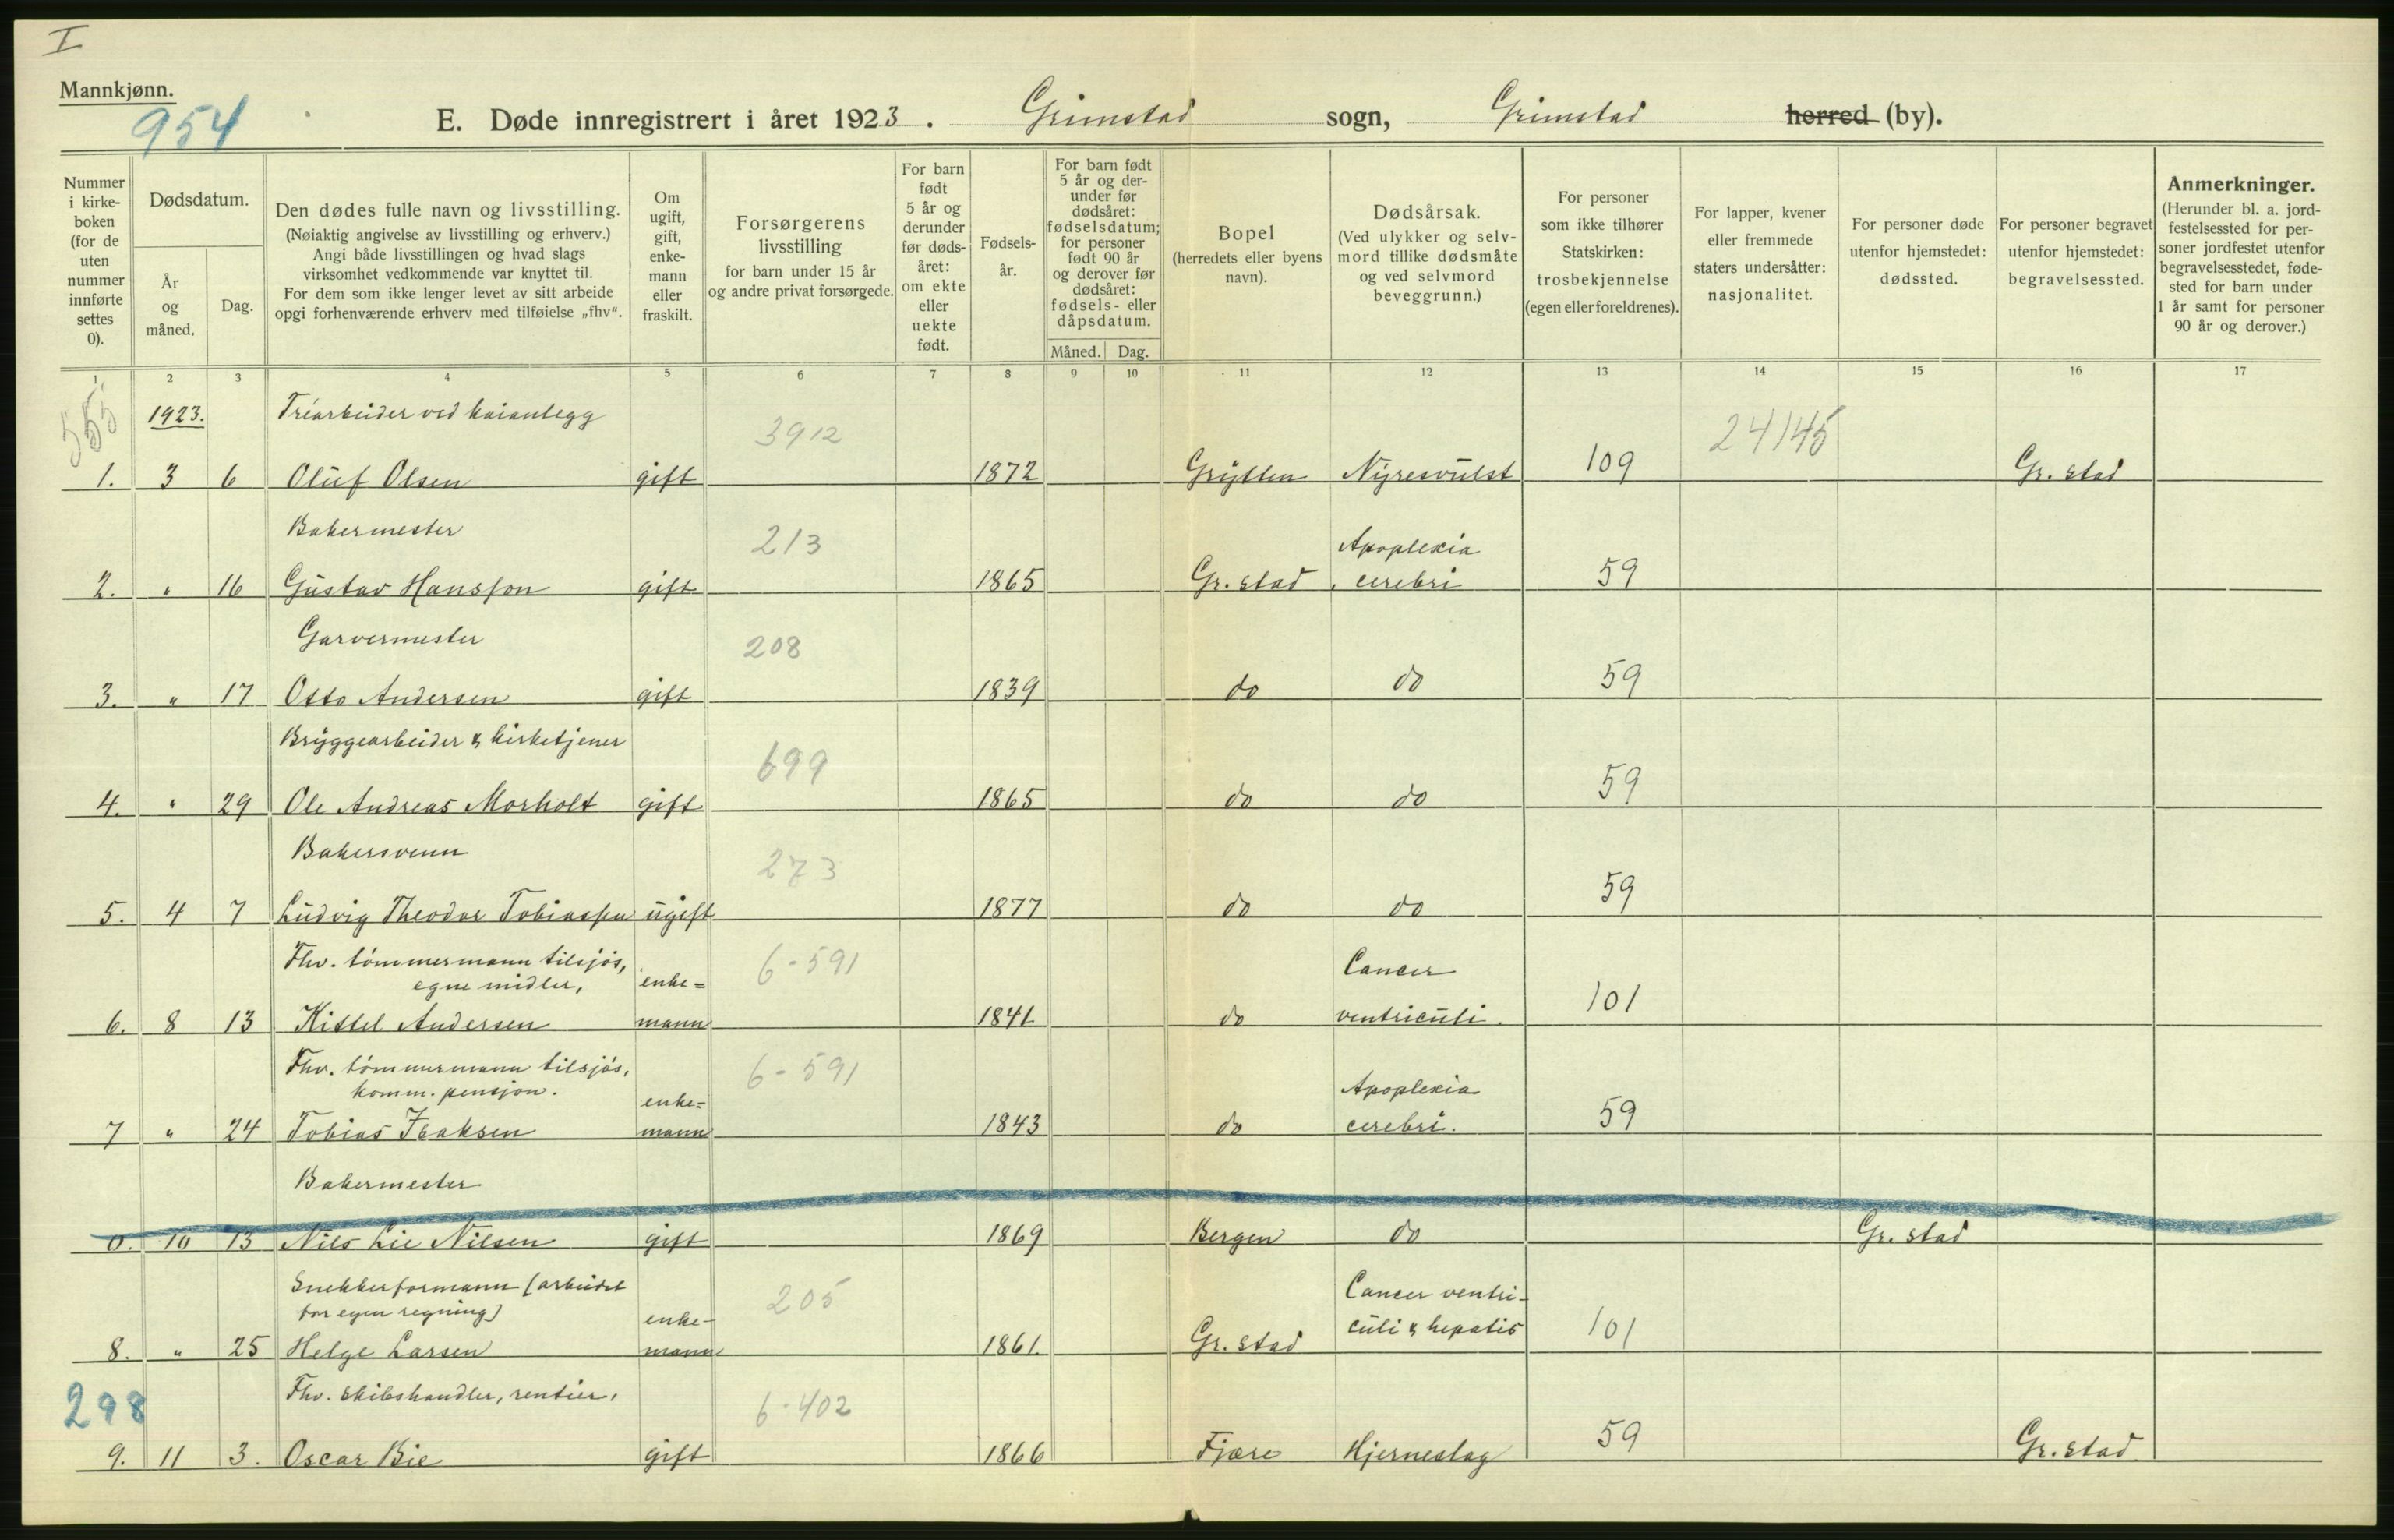 I
Mannkjønn.
954
E. Døde innregistrert i året 1923. Grimstad sogn, Grimstad herred (by).
Nummer i kirkeboken (for de uten nummer innførte settes 0).
Dødsdatum.
År og måned.
Dag.
Den dødes fulle navn og livsstilling.
(Nøiaktig angivelse av livsstilling og erhverv.)
Angi både livsstillingen og hvad slags
virksomhet vedkommende var knyttet til.
For dem som ikke lenger levet av sitt arbeide
opgi forhenværende erhverv med tilføielse „fhv“.
Om ugift, gift, enkemann eller fraskilt.
Forsørgerens livsstilling
for barn under 15 år
og andre privat forsørgede.
For barn født 5 år og derunder før dødsåret: om ekte eller uekte født.
Fødselsår.
For barn født 5 år og derunder før dødsåret: fødselsdatum; for personer født 90 år og derover før dødsåret: fødsels- eller dåpsdatum.
Måned. Dag.
Bopel
(herredets eller byens navn).
Dødsårsak.
(Ved ulykker og selvmord tillike dødsmåte og ved selvmord beveggrunn.)
For personer som ikke tilhører Statskirken: trosbekjennelse (egen eller foreldrenes).
For lapper, kvener eller fremmede staters undersåtter: nasjonalitet.
For personer døde utenfor hjemstedet: dødssted.
For personer begravet utenfor hjemstedet: begravelsessted.
Anmerkninger.
(Herunder bl. a. jordfestelsessted for personer jordfestet utenfor begravelsesstedet, fødested for barn under 1 år samt for personer 90 år og derover.)
1 2 3 4 5 6 7 8 9 10 11 12 13 14 15 16 17
555 1923. Tréarbeider ved kaianlegg 3912 24145
1. 3 6 Oluf Olsen gift 1872 Grytten Nyresvulst 109 Gr. stad
Bakermester 213 Apoplexia
2. " 16 Gustav Hansson gift 1865 Gr. stad cerebri 59
Garvermester 208
3. " 17 Otto Andersen gift 1839 do do 59
Bryggearbeider & kirketjener 699
4. " 29 Ole Andreas Morholt gift 1865 do do 59
Bakersvenn 273
5. 4 7 Ludvig Theodor Tobiassen ugift 1877 do do 59
Fhv. tømmermann tilsjøs, 6-591 Cancer
egne midler, enke=
6. 8 13 Kittel Andersen mann 1841 do ventriculi. 101
Fhv. tømmermann tilsjøs, 6-591 Apoplexia
komm. pensjon. enke=
7 " 24 Tobias Isaksen mann 1843 do cerebri. 59
Bakermester
0. 10 13 Nils Lie Nilsen gift 1869 Bergen do Gr. stad
Snekkerformann (arbeidet 205 Cancer ventri-
for egen regning) enke- culi & hepatis
8. " 25 Helge Larsen mann 1861 Gr. stad 101
298 Fhv. skibshandler, rentier, 6-402
9. 11 3. Oscar Bie gift 1866 Fjære Hjerneslag 59 Gr. stad